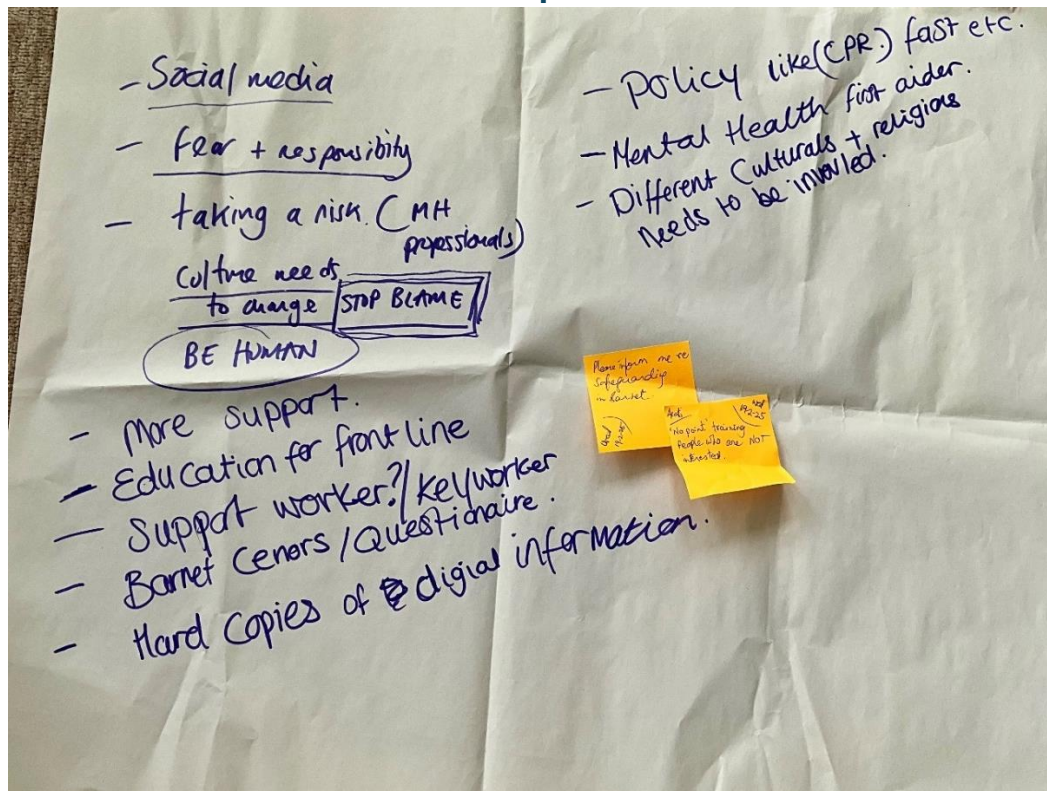 - Social media
- fear + responsibity
- taking a risk. (MH
professionals)
Culture needs
to change STOP BLAME
BE HUMAN
- More support.
- Education for front line
- Support worker?/keyworker
- Barnet Cenors/Questionaire.
- Hard copies of digial information.
- Policy like (CPR.) fast etc.
- Mental Health first aider.
- Different Culturals + religious
needs to be involved.
Please inform me re
Safeguarding
in Barnet.
19-2-25
'No point' training
People who are NOT
interested.